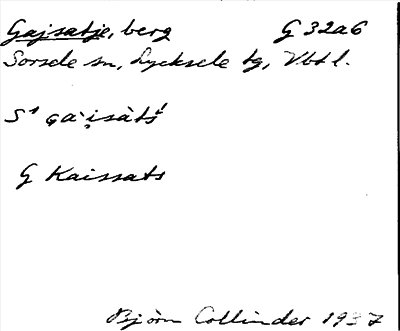 Gajsatje, berg G 32a6
Sorsele sn, Lycksele tg, Vbt l.
G Kaissats
Björn Collinder 1937